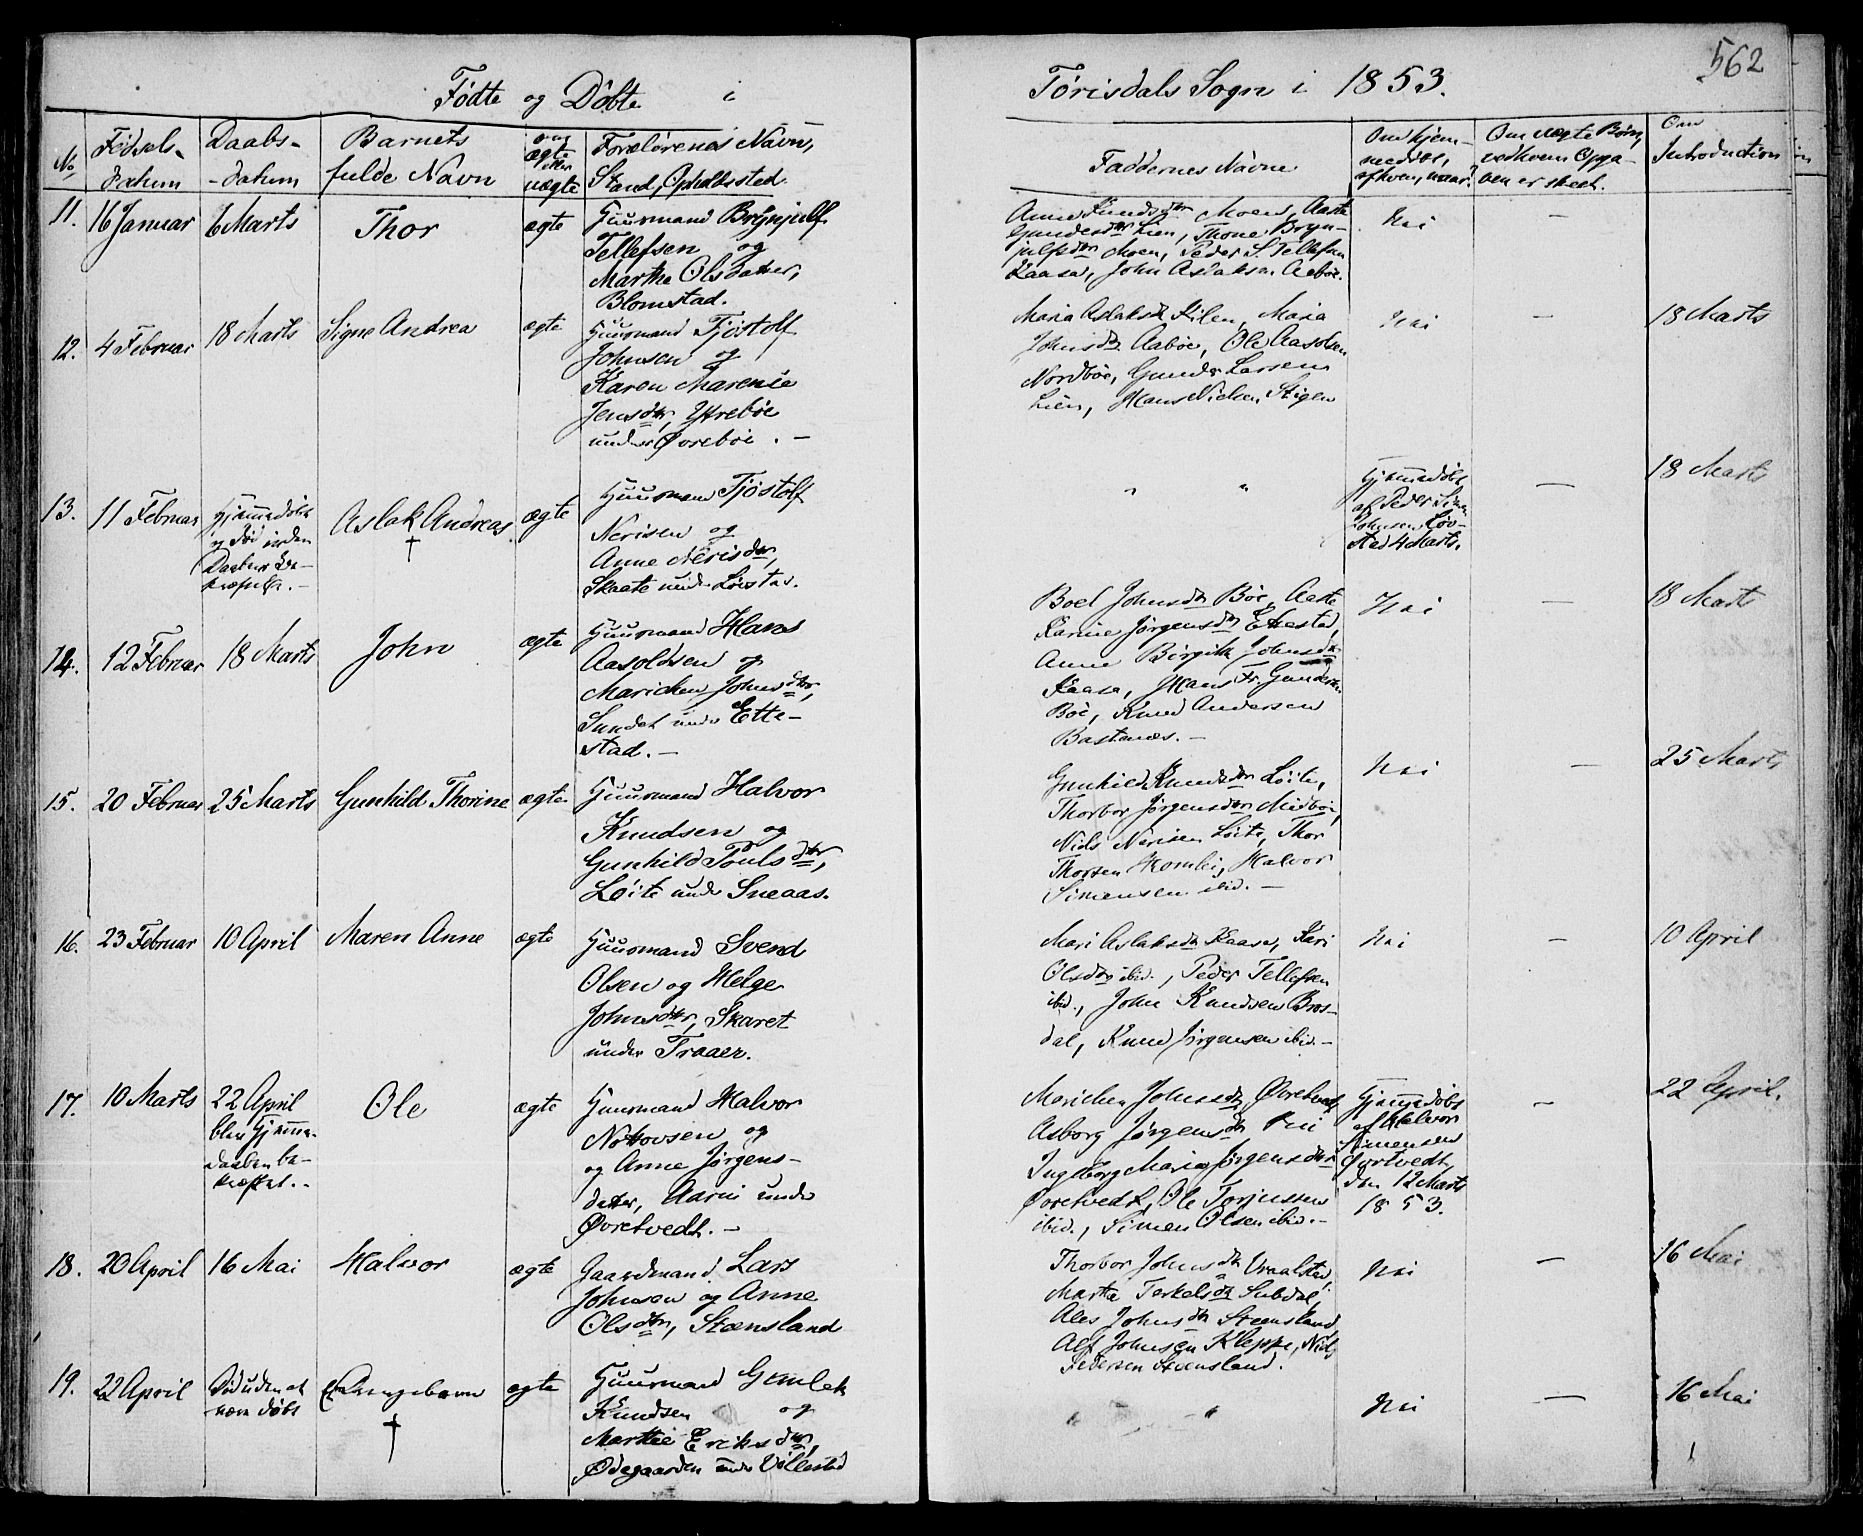 562
Fødte og Døbte i Tørisdals Sogn i 1853.
No
Fødsels-
datum
Daabs-
datum
Barnets
fulde Navn
ægte
eller
uægte
Forældrenes Navn,
Stand, Opholdssted.
Faddernes Navne
Om hjem-
medøbt,
af hvem, naar?
Om uægte Børn,
ved hvem Opga-
ven er skeet.
Om
Introduction
11. 16 Januar 6 Marts Thor ægte
Huusmand Brynjulf
Tellefsen og
Marthe Olsdatter,
Blomstad.
Anne Knudsdtr Moen, Aaste
Gundersdtr Lien, Thone Bryn-
julfsdtr Moen, Peder S. Tellefsen
Kaasa, John Aslaksen Aaboe.
Nei —
12. 4 Februar 18 Marts Signe Andrea ægte
Huusmand Tjøstolf
Johnsen og
Karen Marenie
Jensdtr, Ytrebøe
under Øvrebøe. —
Maria Aslaksdtr Kilen, Maria
Johnsdtr Aaboe, Ole Aasolsen
Nordbøe, Gunder Larsen
Lien, Hans Nielsen Stigen
Nei — 18 Marts
13. 11 Februar
Hjemmedøbt
og Død inden
Daabens be-
kræftelse. —
Aslak Andreas †
ægte
Huusmand Tjøstolf
Nerisen og
Anne Nerisdtr,
Skaate under Løvstad.
" "
Hjemmedøbt
af Peder Simen
Johnsen Løv-
stad 4 Marts.
— 18 Marts
14. 12 Februar 18 Marts John ægte
Huusmand Hans
Aasoldsen og
Marichen Johnsdtr,
Sundet under Ette-
stad. —
Boel Johnsdtr Bøe, Aaste
Karine Jørgensdtr Ettestad,
Anne Birgithe Johnsdtr
Kaasa, Hans Fr. Gundersen
Bøe, Knud Andersen
Bastnæs. —
Nei — 18 Marts
15. 20 Februar 25 Marts Gunhild Thorine ægte
Huusmand Halvor
Knudsen og
Gunhild Poulsdtr,
Løite under Sneaas.
Gunhild Knudsdtr Løite,
Thorbor Jørgensdtr Midbøe,
Niels Nerisen Løite, Thor
Thorsen Homlei, Halvor
Simensen ibid. —
Nei — 25 Marts
16. 23 Februar 10 April Maren Anne ægte
Huusmand Svend
Olsen og Helge
Johnsdtr, Skaret
under Traaer.
Mari Aslaksdtr Kaasa, Kari
Olsdtr ibid., Peder Tellefsen
ibid., John Knudsen Bros-
dal, Knud Jørgensen ibid. —
Nei — 10 April
17. 10 Marts
22 April
blev Hjemme-
daaben be-
kræftet. —
Ole ægte
Huusmand Halvor
Nottovsen og
og Anne Jørgens-
datter, Aarni under
Øvretvedt. —
Marichen Johnsdtr Øvretvedt,
Asborg Jørgensdtr
Ingeborg Maria Jørgensdtr
Øvretvedt, Ole Torjussen
ibid., Simen Olsen ibid. —
Hjemmedøbt
af Halvor
Simensen
Øvretvedt,
den 12 Marts
1853.
— 22 April.
18. 20 April 16 Mai Halvor ægte
Gaardmand Lars
Johnsen og Anne
Olsdtr, Steensland
Thorbor Johnsdtr Vraalstad,
Martha Terkelsdtr Subdal,
Ales Johnsdtr Steensland
Alf Johnsen Kleppe, Niels
Pedersen Steensland.
Nei — 16 Mai
19. 22 April
Død uden at
være døbt
Drengebarn †
ægte
Huusmand Gimlek
Knudsen og
Marthe Eriksdtr,
Ødegaarden under Villestad
" "
Nei — 16 Mai